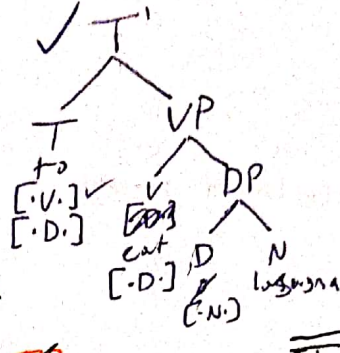 ✓ T'
T VP
to
[·V·] ✓ V DP
[·D·]
eat D N
[·D·] lasagna
[·N·]